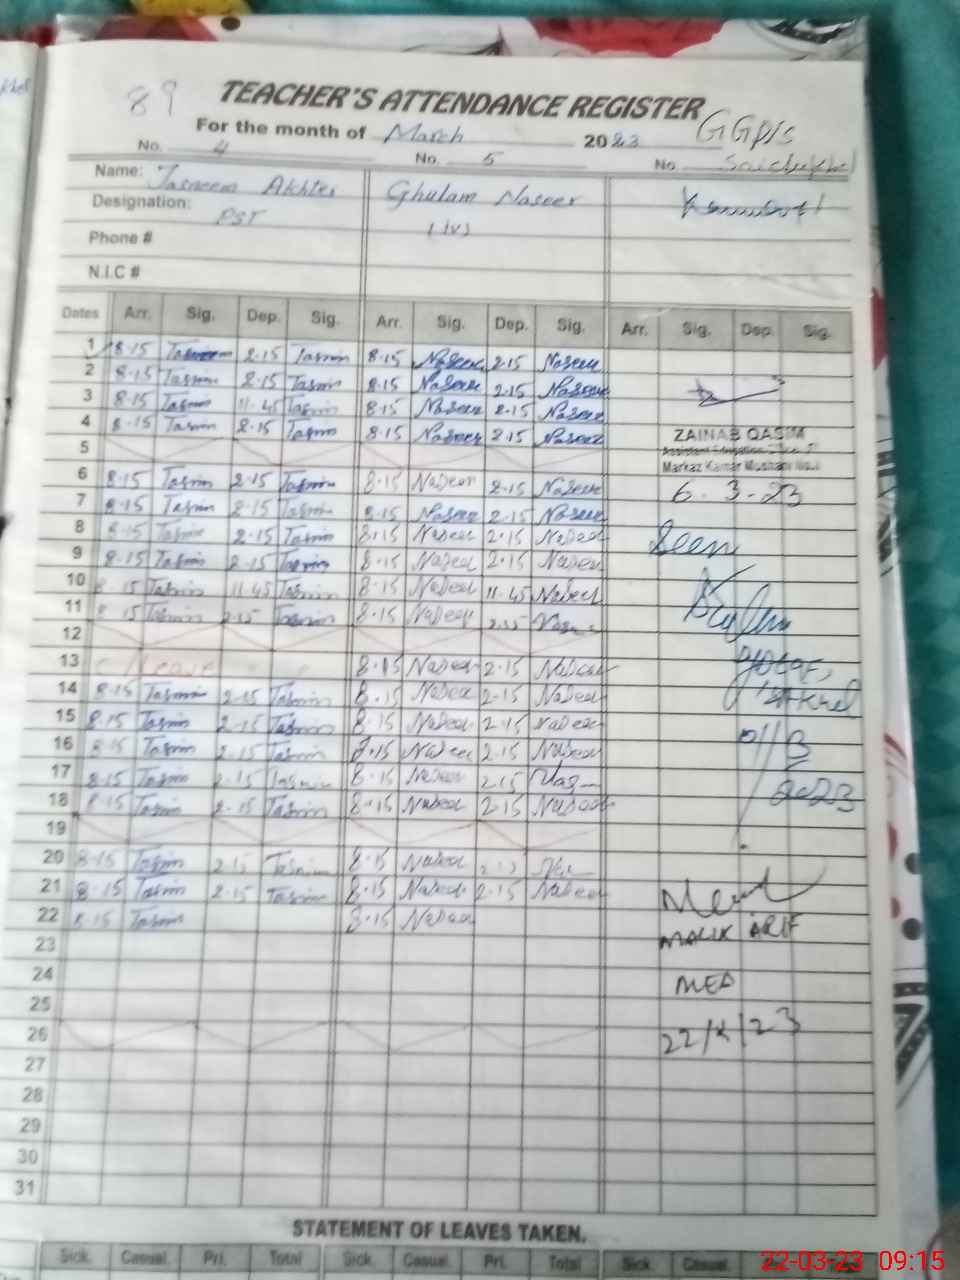 89 TEACHER'S ATTENDANCE REGISTER
For the month of March 2023 GGP/S
No. 4 No. 5 No.
Name: Tasneem Akhter Ghulam Naseer
Designation: PST (IV)
Phone #
N.I.C #
Dates Arr. Sig. Dep. Sig. Arr. Sig. Dep. Sig. Arr. Sig. Dep. Sig.
1 8.15 Tasneem 2.15 Tasmin 8.15 Naseer 2.15 Naseer
2 8.15 Tasmin 2.15 Tasmin 8.15 Naseer 2.15 Naseer
3 8.15 Tasmin 11.45 Tasmin 8.15 Naseer 2.15 Naseer
4 8.15 Tasmin 2.15 Tasmin 8.15 Naseer 2.15 Naseer
ZAINAB QASIM
5
Assistant Education
Markaz Kamar Mushani No.I
6 8.15 Tasmin 2.15 Tasmin 8.15 Naseer 2.15 Naseer 6.3.23
7 8.15 Tasmin 2.15 Tasmin 8.15 Naseer 2.15 Naseer
8 8.15 Tasmin 2.15 Tasmin 8.15 Naseer 2.15 Naseer Seen
9 8.15 Tasmin 2.15 Tasmin 8.15 Naseer 2.15 Naseer
10 8.15 Tasmin 11.45 Tasmin 8.15 Naseer 11.45 Naseer
11 8.15 Tasmin 2.15 Tasmin 8.15 Naseer 2.15
12
13 8.15 Naseer 2.15 Naseer
14 8.15 Tasmin 2.15 Tasmin 8.15 Naseer 2.15 Naseer
15 8.15 Tasmin 2.15 Tasmin 8.15 Naseer 2.15 Naseer
16 8.15 Tasmin 2.15 Tasmin 8.15 Naseer 2.15 Naseer
17 8.15 Tasmin 2.15 Tasmin 8.15 Naseer 2.15
18 8.15 Tasmin 2.15 Tasmin 8.15 Naseer 2.15 Naseer 2023
19
20 8.15 Tasmin 2.15 Tasmin 8.15 Naseer
21 8.15 Tasmin 2.15 Tasmin 8.15 Naseer 2.15 Naseer
22 8.15 Tasmin 8.15 Naseer
MALIK ARIF
23
24 MEA
25
26 22/3/23
27
28
29
30
31
STATEMENT OF LEAVES TAKEN.
Sick. Casual. Pri. Total Sick. Casual. Pri. Total Sick. Casual.
22-03-23 09:15